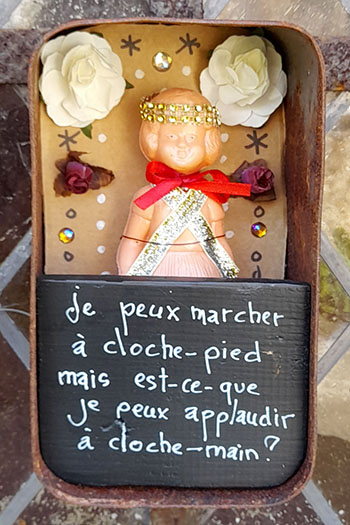 je peux marcher
à cloche-pied
mais est-ce-que
je peux applaudir
à cloche-main?